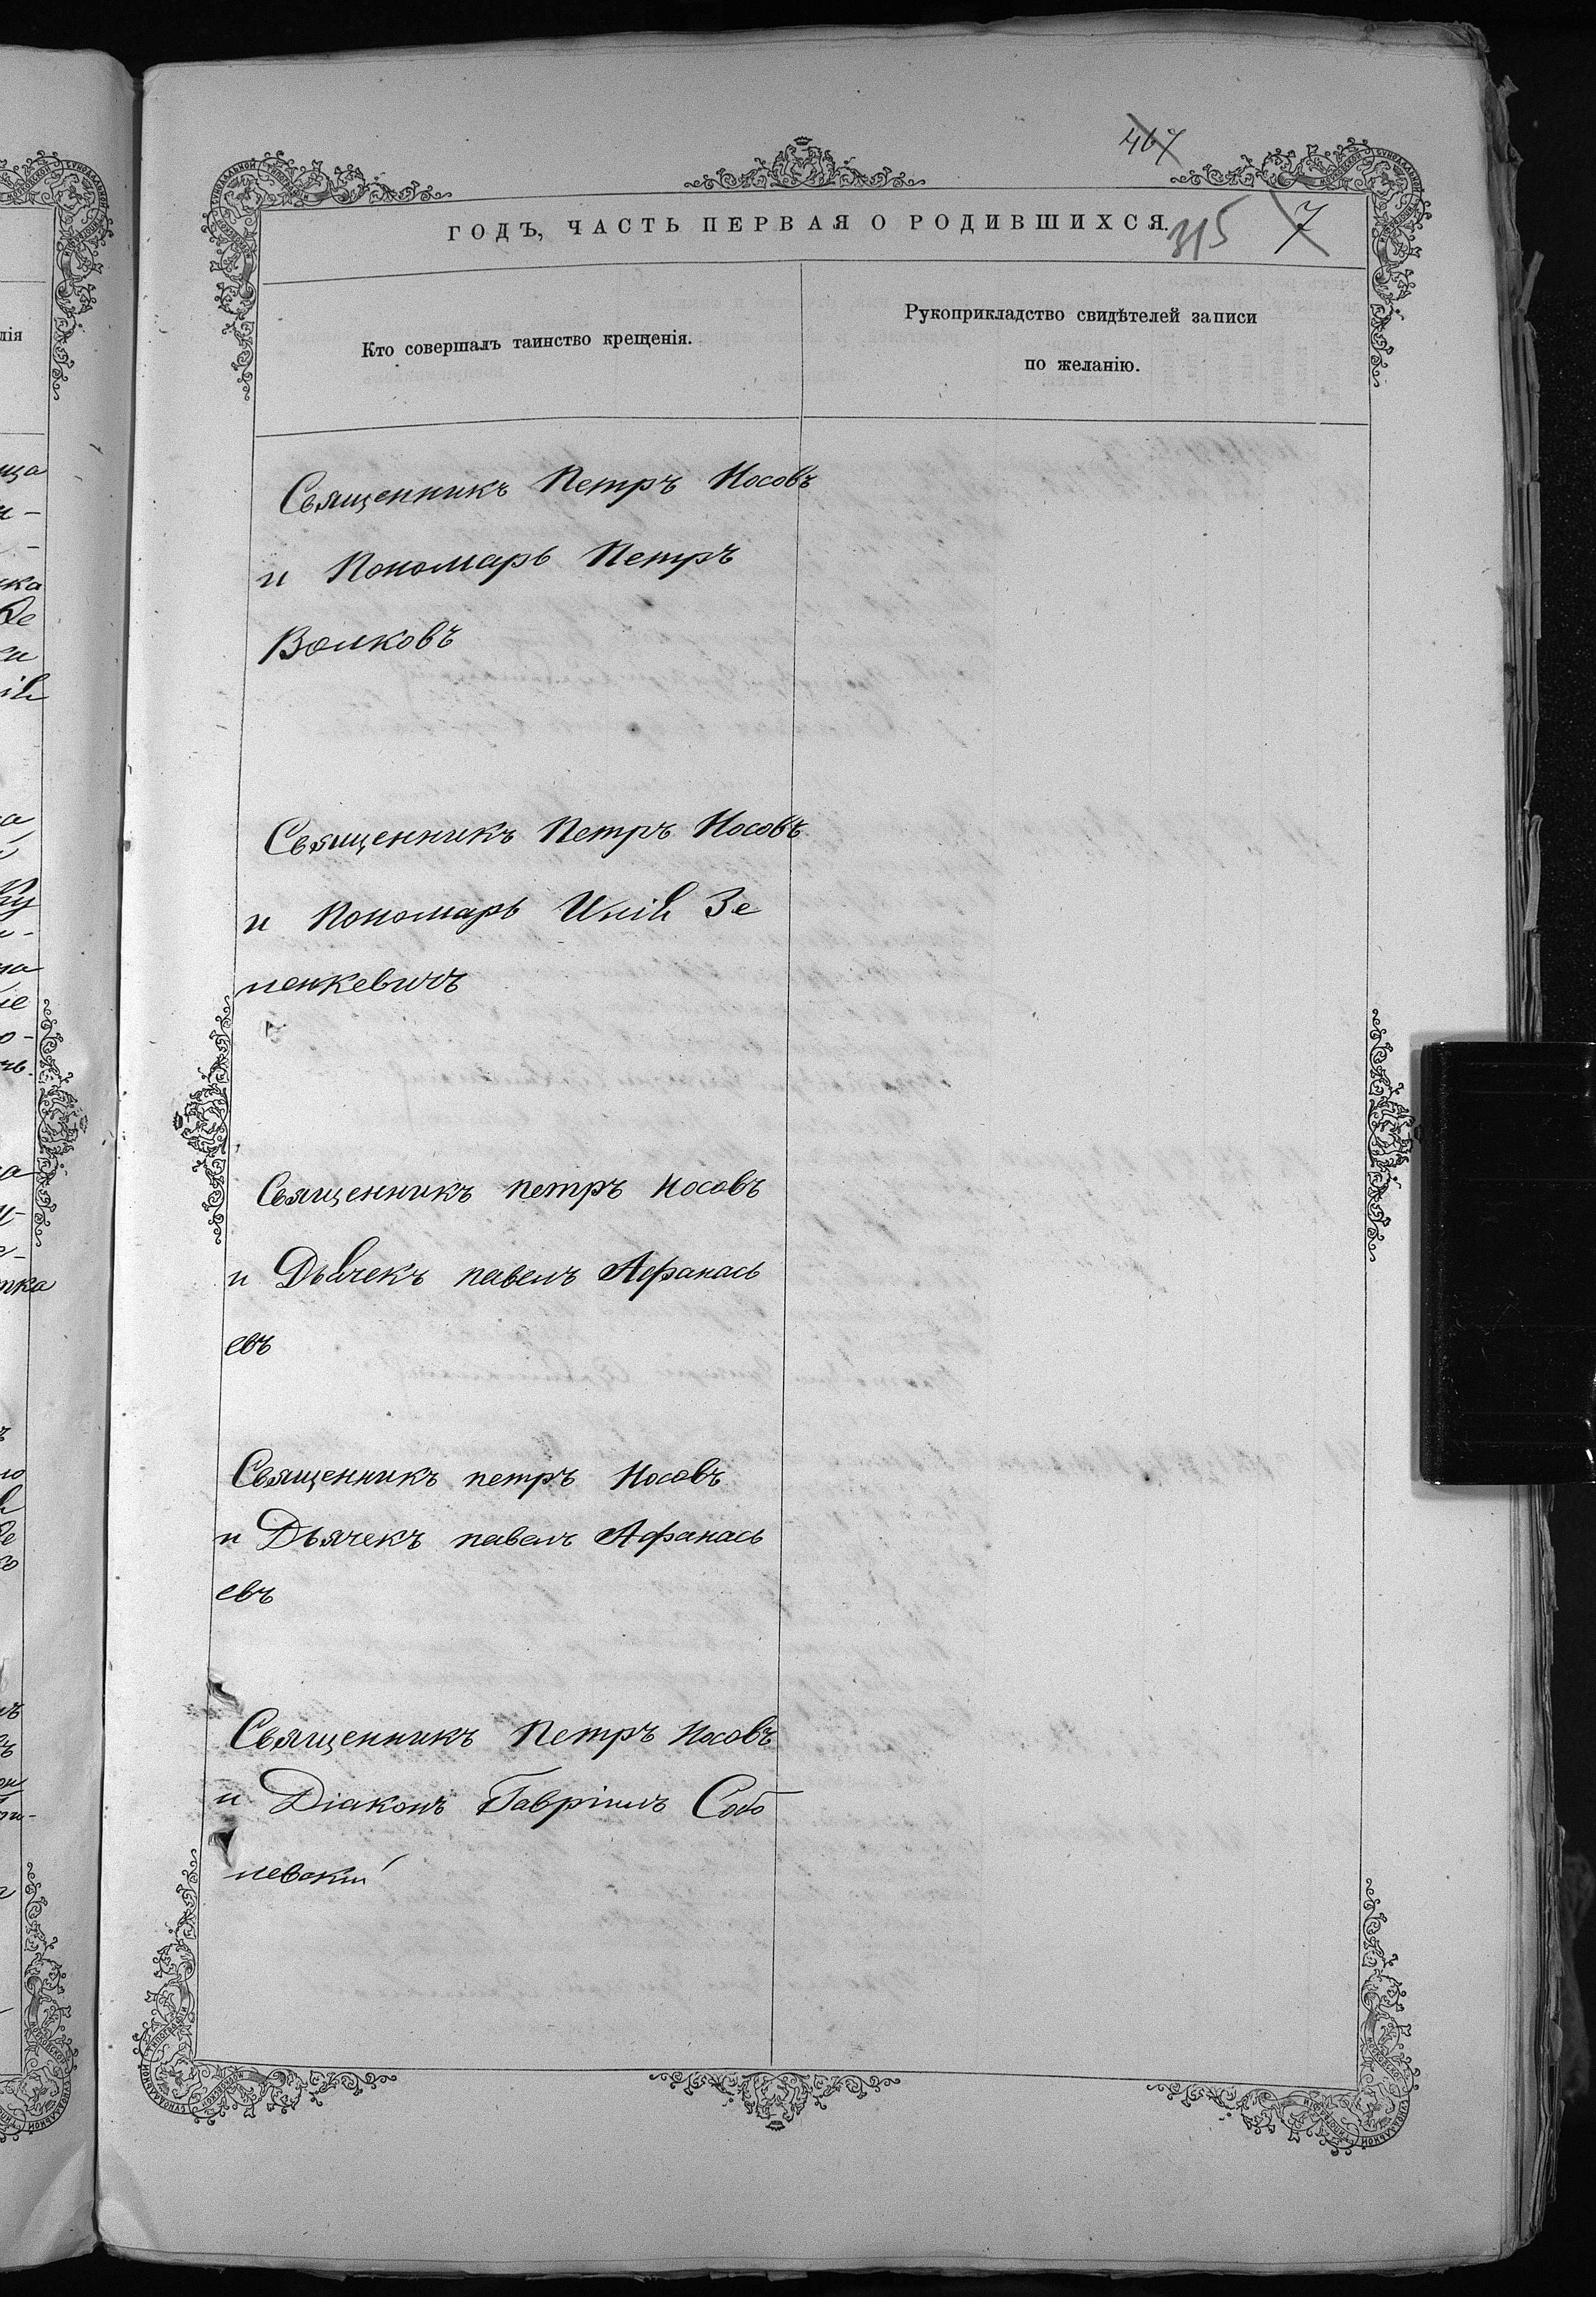 467
ГОДЪ, ЧАСТЬ ПЕРВАЯ О РОДИВШИХСЯ.
315 7
Кто совершалъ таинство крещенія.
Рукоприкладство свидѣтелей записи
по желанію.
Священникъ Петръ Носовъ
и Пономарь Петръ
Волковъ
Священникъ Петръ Носовъ
и Пономарь Илія Зе
ленкевичъ
Священникъ петръ Носовъ
и Дьячекъ павелъ Афанась
евъ
Священникъ петръ Носовъ
и Дьячекъ павелъ Афанась
евъ
Священникъ Петръ Носовъ
и Діаконъ Гавріилъ Собо
левскій